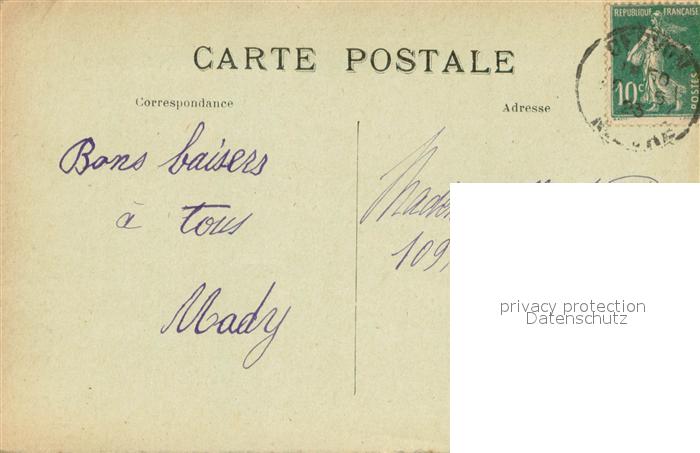 CARTE POSTALE
REPUBLIQUE FRANÇAISE
10c
POSTES
Correspondance
Adresse
Bons baisers
à tous
Mady
109
privacy protection
Datenschutz